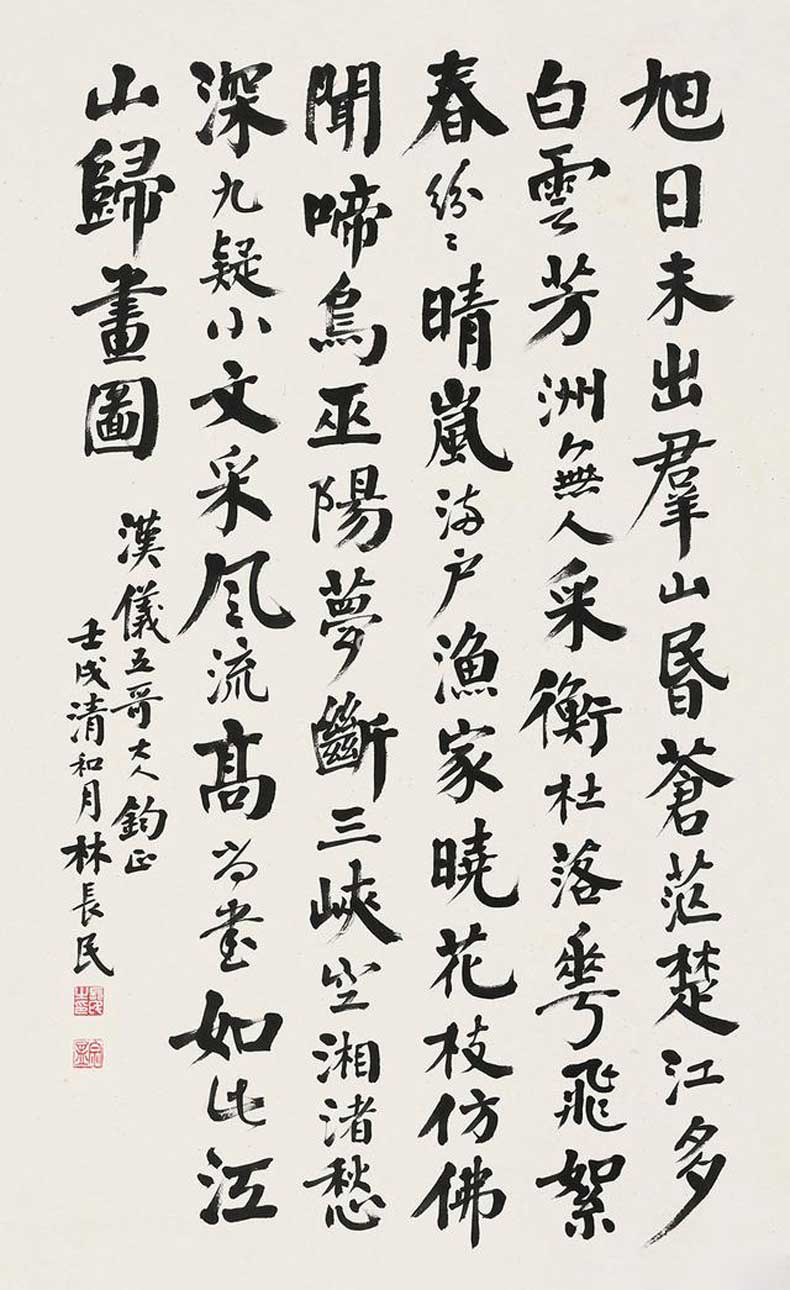 旭日未出羣山昏蒼茫楚江多
白雲芳洲無人采蘅杜落蕚飛絮
春紛〻晴嵐滿户漁家曉花枝仿佛
聞啼烏巫陽夢斷三峽空湘渚愁
深九疑小文采風流髙尚書如此江
山歸畫圖
漢儀五哥大人鈞正
壬戌清和月林長民